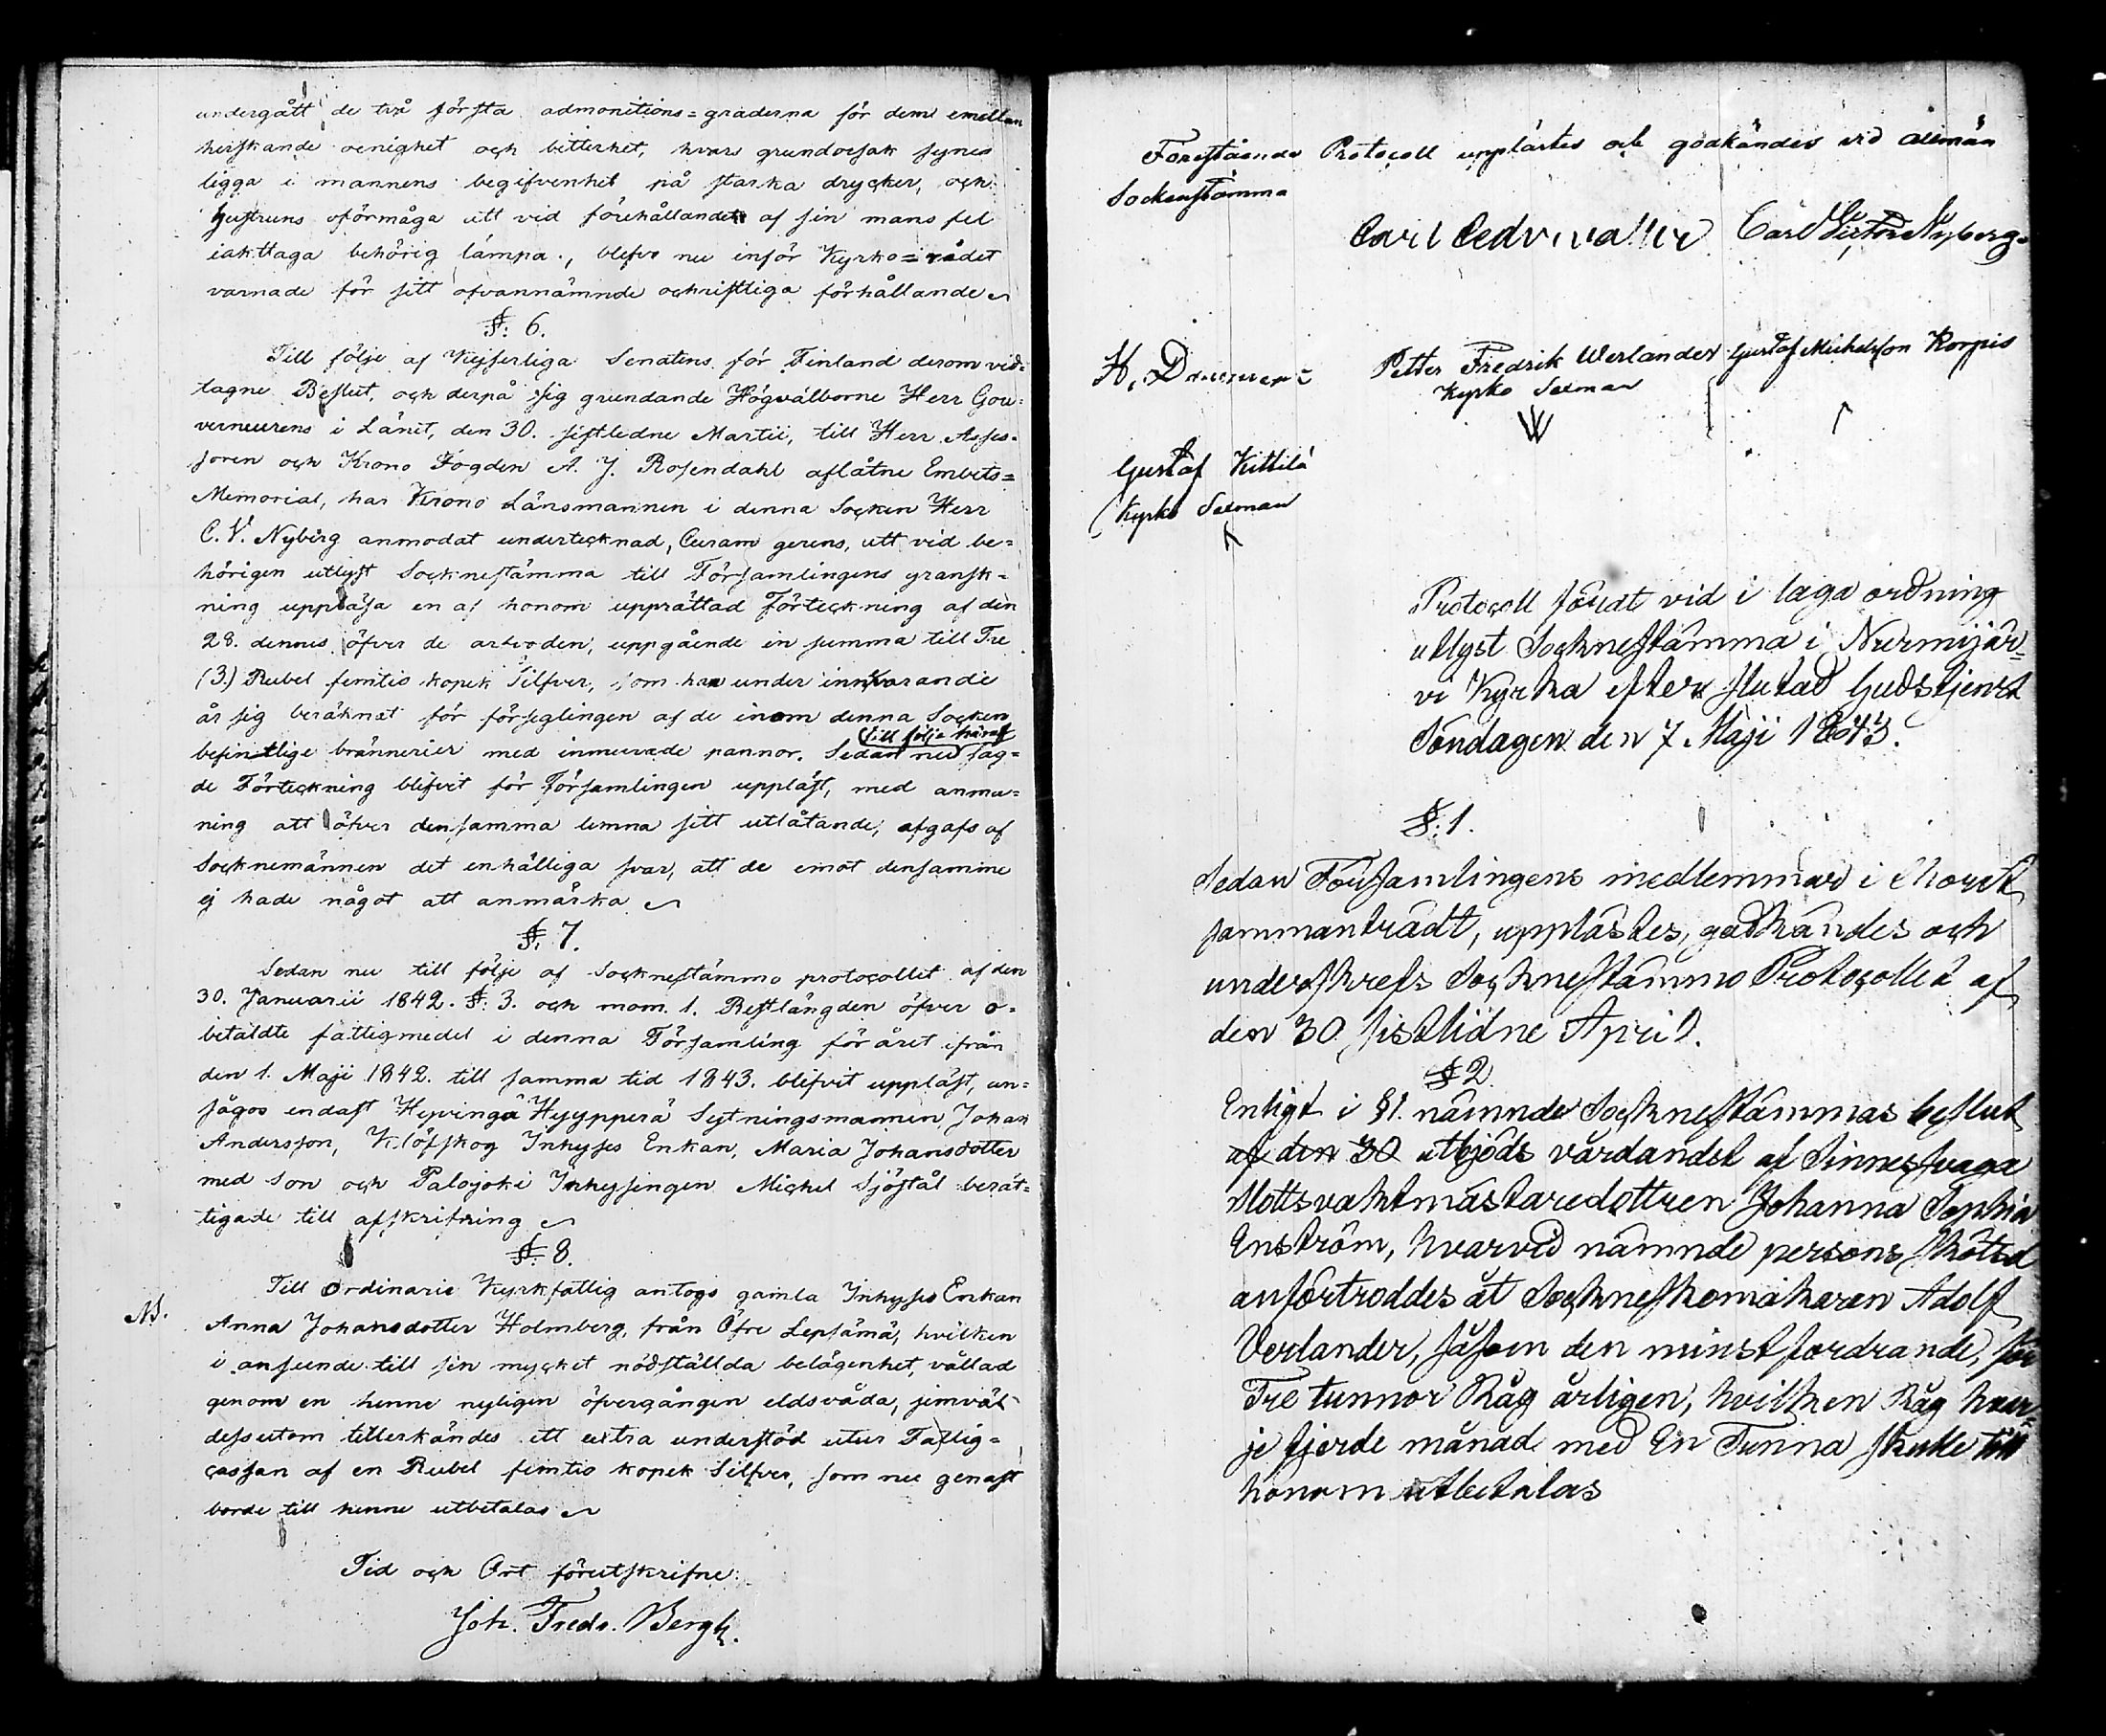 undergått de två första admonitions=graderna för dem emellan
herskande oenighet och bitterhet, hvars grundorsak synes
ligga i mannens begifvenhet på starka drycker, och
hustruns oförmåga att vid förehållandet af sin mans fel
iakttaga behörig lämpa, blefvo nu inför Kyrko=rådet
varnade för sitt ofvannämnde ochristliga förhållande
§: 6.
Till följe af Kejserliga Senatens för Finland derom vid=
tagne Beslut, och derpå sig grundande Högvälborne Herr Gou=
verneurens i Länet, den 30. sistledne Martii, till Herr Asses=
soren och Krono Fogden A. J. Rosendahl aflåtne Embets=
Memorial, har Krono Länsmannen i denna Socken Herr
C. V. Nyberg anmodat undertecknad, Curam gerens, att vid be=
hörigen utlyst Socknestämma till Församlingens gransk=
ning uppläsa en af honom upprättad Förteckning af den
28. dennes öfver de arfvoden, uppgående in summa till Tre
(3) Rubel femtio kopek Silfver, som han under innevarande
år sig beräknat för förseglingen af de inom denna Socken
befintlige brännerier med inmurade pannor. Sedan nu sag=
till följe häraf
de Förteckning blifvit för Församlingen uppläst, med anma=
ning att öfver densamma lemna sitt utlåtande, afgafs af
Socknemännen det enhälliga svar, att de emot densamme
ej hade något att anmärka
§: 7.
Sedan nu till följe af Socknestämmo protocollet af den
30. Januarii 1842. §: 3. och mom. 1. Restlängden öfver o=
betaldte fattigmedel i denna Församling för året ifrån
den 1. Maji 1842. till samma tid 1843. blifvit uppläst, an=
sågos endast Hyvingä Hyypperä Sytningsmannen Johan
Andersson, Klöfskog Inhyses Enkan, Maria Johansdotter
med son och Palojoki Inhysingen Michel Sjöstål berät=
tigade till afskrifning
§: 8.
Till Ordinarie Kyrkfattig antogs gamla Inhyses Enkan
NB.
Anna Johansdotter Holmberg, från Öfre Lepsämä, hvilken
i anseende till sin mycket nödställda belägenhet, vållad
genom en henne nyligen öfvergången eldsvåda, jemväl
dessutom tillerkändes ett extra understöd utur Fattig=
cassan af en Rubel femtio kopek Silfver, som nu genast
borde till henne utbetalas
Tid och Ort förutskrifne
Joh. Fredr. Bergh.
Forestående Protocoll upplästes och godkändes vid allmän
Sockenstämma
Carl Cedervaller Carl Victor Nyberg
H. Petter Fredrik Werlander Gustaf Michelsson Korpis
Kyrko Sexman
Gustaf Kittilä
Kyrko Sexman
Protocoll fördt vid i laga ordning
utlyst Sockneſtämma i Nurmijär=
vi Kyrka efter slutad Gudstjenst
Söndagen den 7 Maji 1843.
§: 1.
Sedan Församlingens medlemmar i Choret
sammanträdt, upplästes, godkändes och
underskrefs Sockneſtämmo Protocollet af
den 30 sistlidne April.
§ 2
Enligt i §1. nämnde Sockneſtämmas beslut
af den 30 utbjöds vårdandet af Sinnessvaga
Slottsvaktmästaredottren Johanna Sophia
Enström, hvarvid nämnde persons skötsel
anförtroddes åt Sockneskomakaren Adolf
Verlander, såsom den minst fordrande, för
Tre tunnor Råg årligen, hvilken Råg hvar=
je fjerde månad med En Tunna skulle till
honom utbetalas